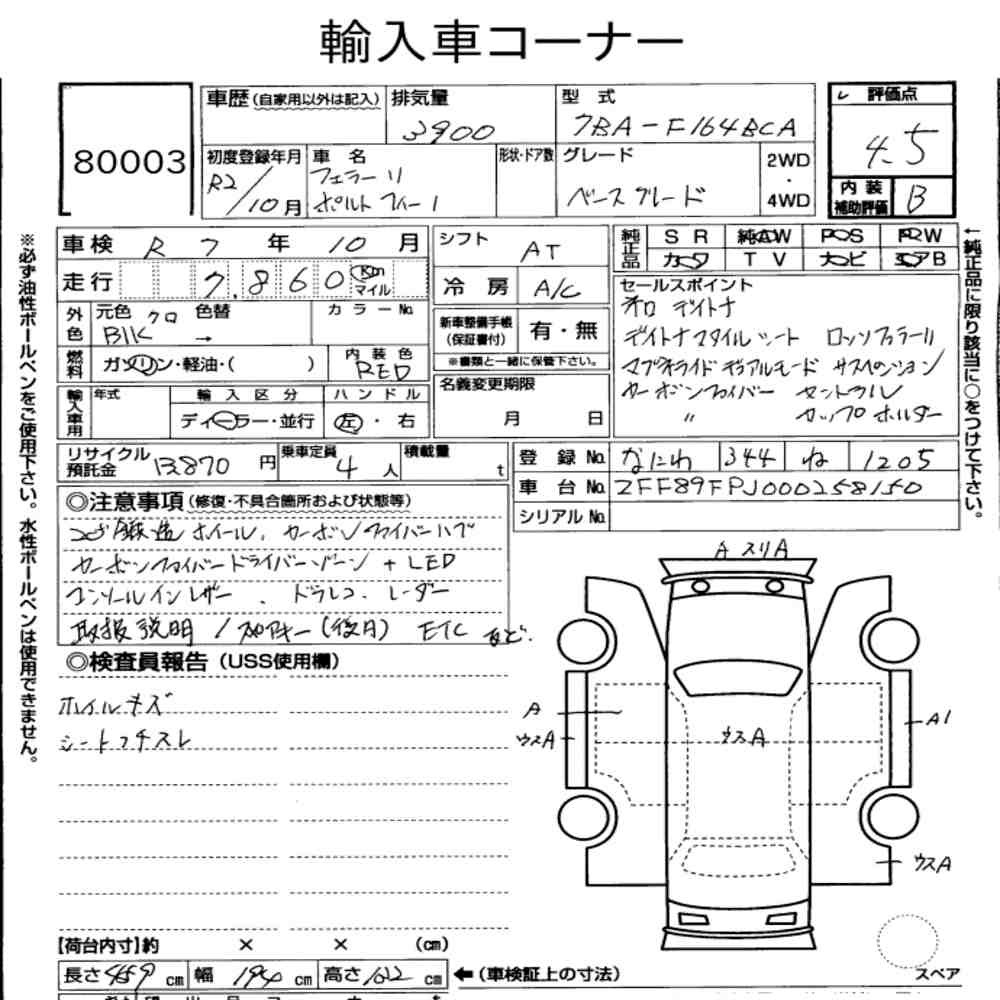 輸入車コーナー
80003
車歴(自家用以外は記入) 排気量 3900 型式 7BA-F164BCA
レ 評価点 4.5
内装補助評価 B
初度登録年月 R2/10月 車名 フェラーリ ポルトフィーノ 形状・ドア数 グレード ベースグレード 2WD・4WD
車検 R 7 年 10 月
走行 7,860 Km マイル
外色 元色 クロ Bllk 色替 → カラーNo.
燃料 ガソリン・軽油・( ) 内装色 RED
輸入車用 年式 輸入区分 ディーラー・並行 ハンドル 左・右
リサイクル預託金 13,870 円 乗車定員 4 人 積載量 t
シフト AT
冷房 A/C
新車整備手帳(保証書付) 有・無
※書類と一緒に保管下さい。
名義変更期限 月 日
純正品 SR 純AW PS PW
カワ TV ナビ エアB
セールスポイント
ネロ デイトナ
デイトナスタイルシート ロッソフェラーリ
マグネライド デュアルモード サスペンション
カーボンファイバー セントラル
〃 カップホルダー
登録No. なにわ 344 ね 1205
車台No. ZFF89FPJ000258150
シリアルNo.
◎注意事項(修復・不具合箇所および状態等)
鍛造ホイール、カーボンファイバーハブ
カーボンファイバードライバーゾーン + LED
コンソールインレザー、ドラレコ、レーダー
取扱説明 / スペアキー(後日) ETC など.
◎検査員報告(USS使用欄)
ホイルキズ
シートフチスレ
A スリA
A
ウスA
ウスA
A1
ウスA
スペア
【荷台内寸】約 × × (cm)
長さ 459 cm 幅 194 cm 高さ 132 cm ←(車検証上の寸法)
※必ず油性ボールペンをご使用下さい。水性ボールペンは使用できません。
←純正品に限り該当に○をつけて下さい。